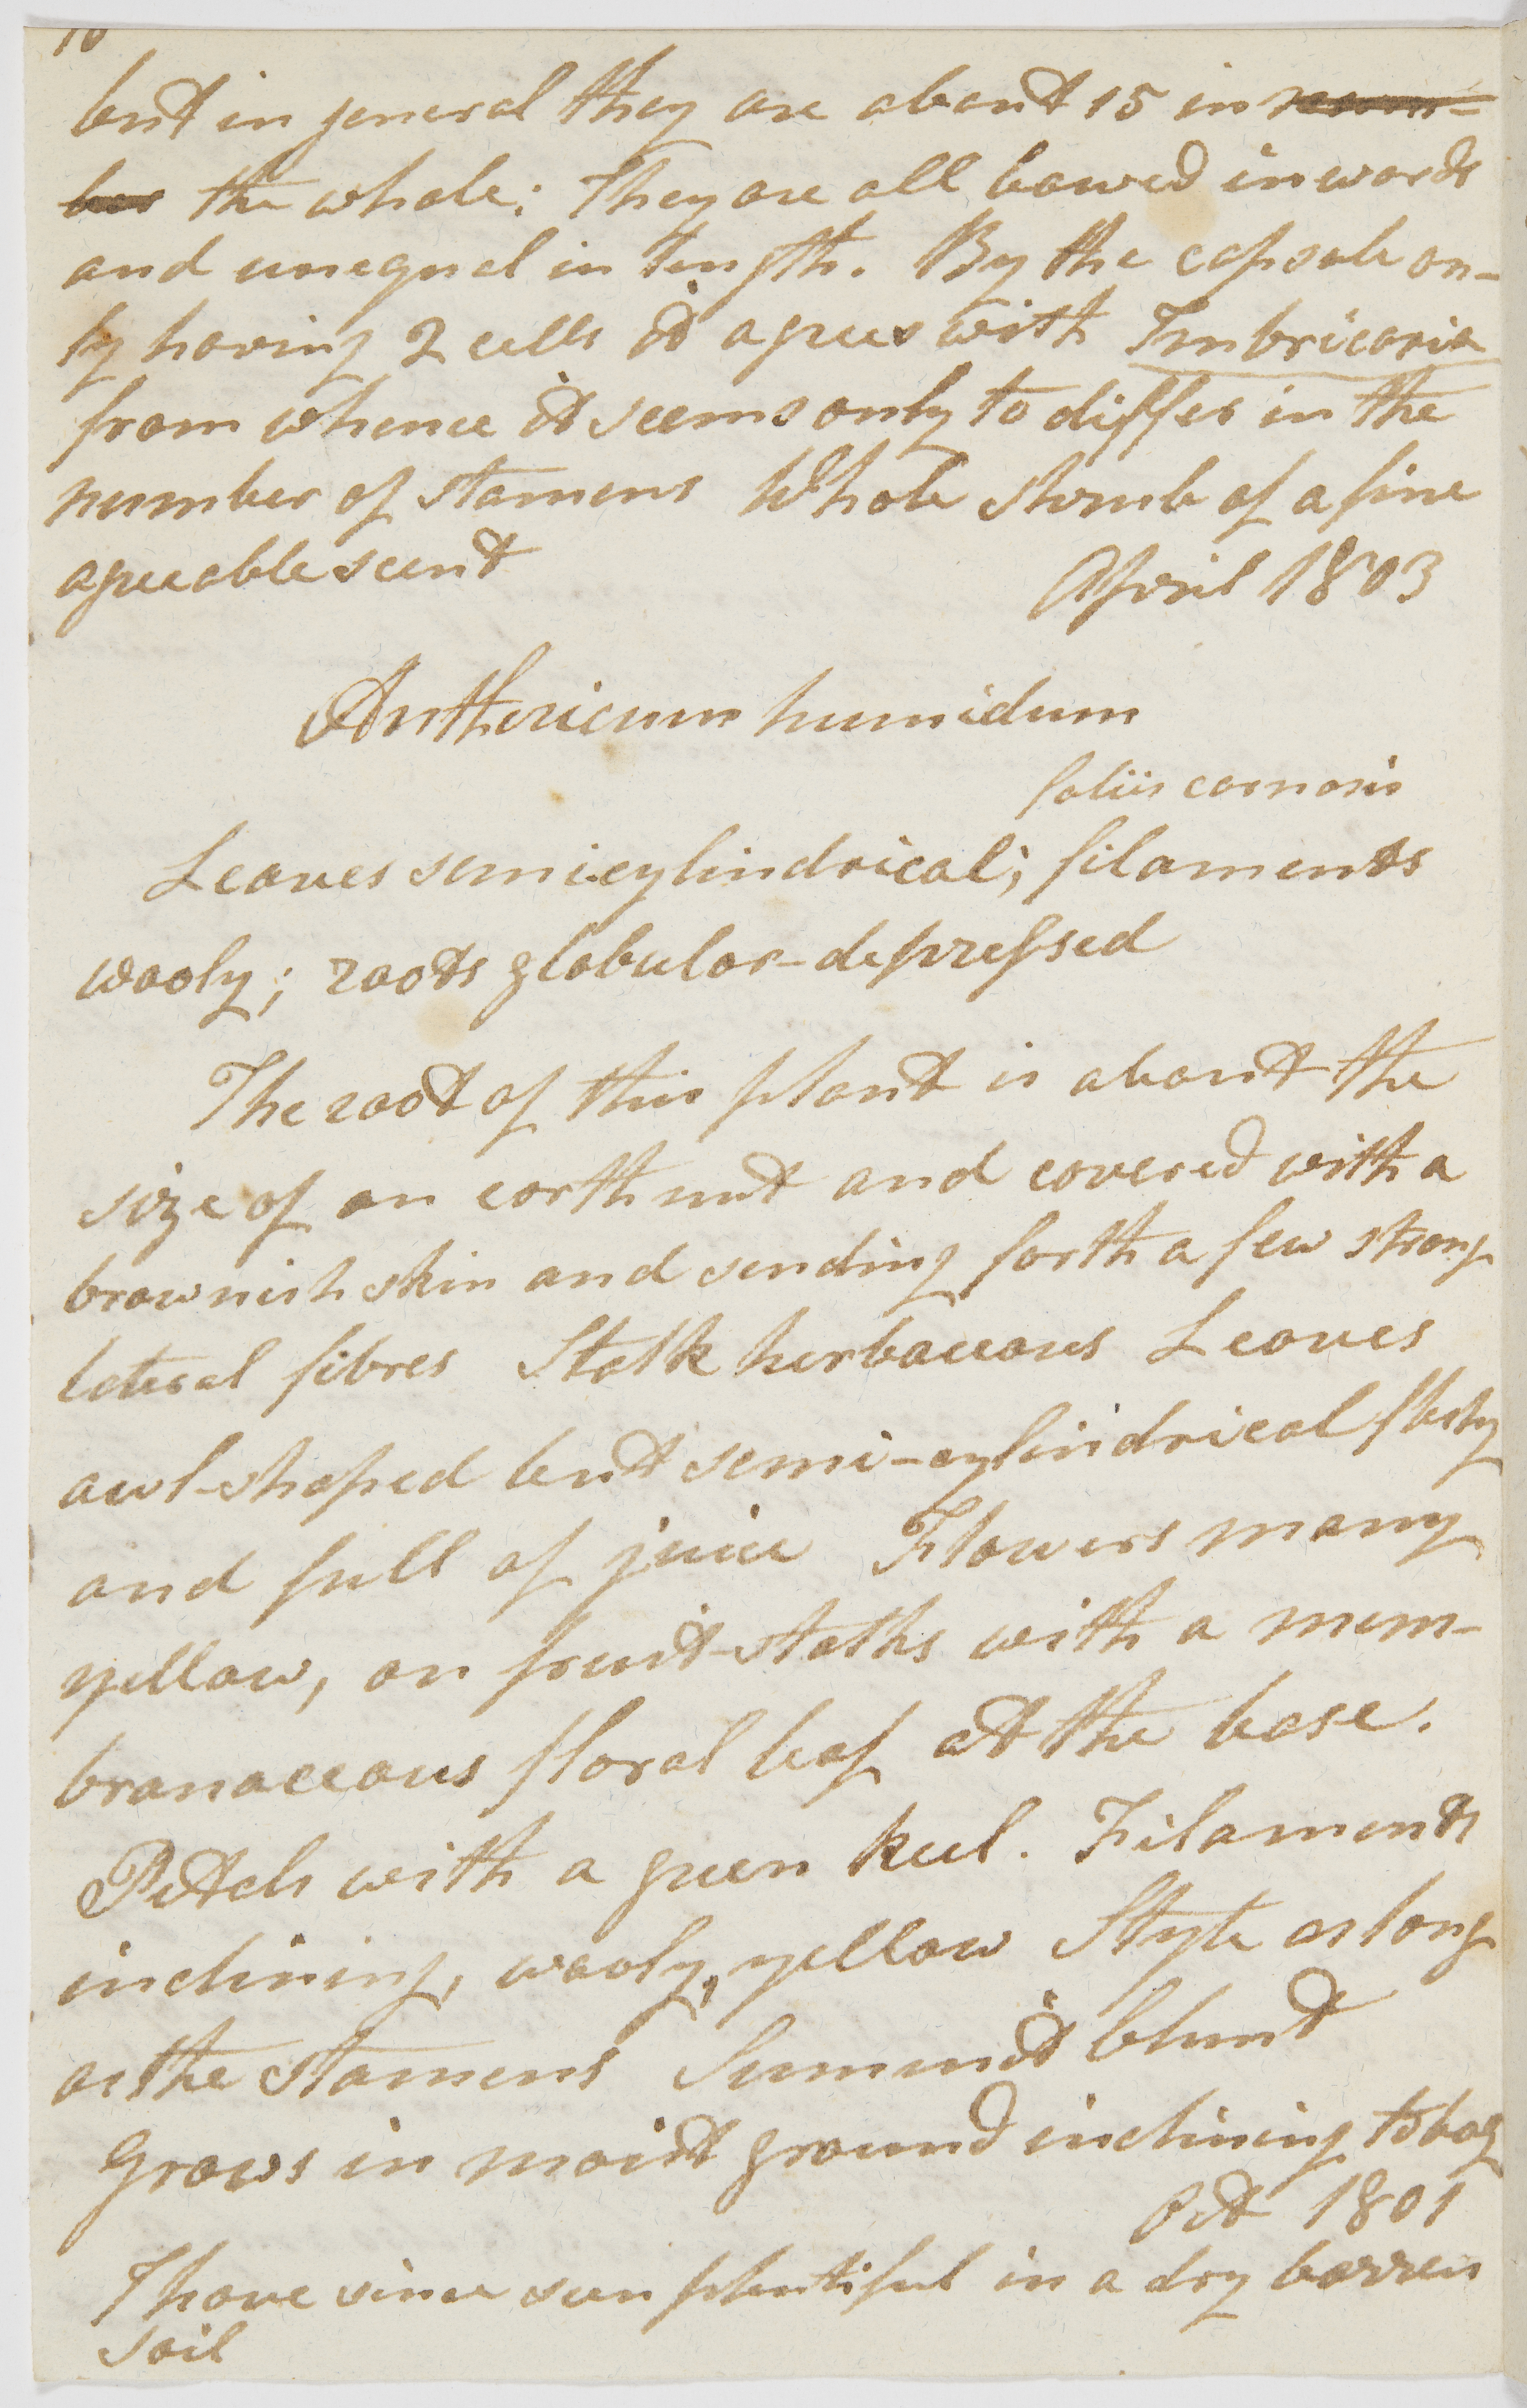 but in general they are about 15 in num-
ber the whole: They are all bowed inwards
and unequal in length. By the capsule on-
ly having 2 cells it agrees with Imbricaria
from whence it seems only to differ in the
number of stamens Whole shrub of a fine
agreeable scent
April 1803
Anthericum humidum
foliis carnosis
Leaves semicylindrical; filaments
wooly; roots globular-depressed
The root of this plant is about the
size of an earth nut and covered with a
brownish skin and sending forth a few strong
lateral fibres Stalk herbaceous Leaves
awl-shaped but semi-cylindrical fleshy
and full of juice Flowers many
yellow, on fruit-stalks with a mem-
branaceous floral leaf at the base.
Petals with a green keel. Filaments
inclining, wooly, yellow Style as long
as the stamens Summit blunt
Grows in moist ground inclining to bog
Oct 1801
I have since seen plentiful in a dry barren
soil